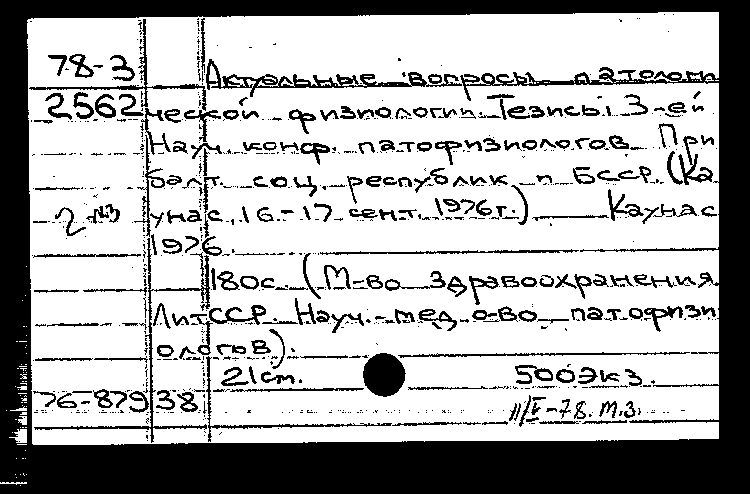 78-3 Актуальные вопросы патологи
2562 ческой физиологии. Тезисы 3-ей
Науч. конф. патофизиологов При
балт. соц. республик и БССР. (Ка
2 унас, 16.-17 сент. 1976г.) Каунас
1976.
180с. (М-во здравоохранения
ЛитССР. Науч.-мед. о-во патофизи
ологов).
21см. 500экз.
76-87938 11/V-78. М.З.